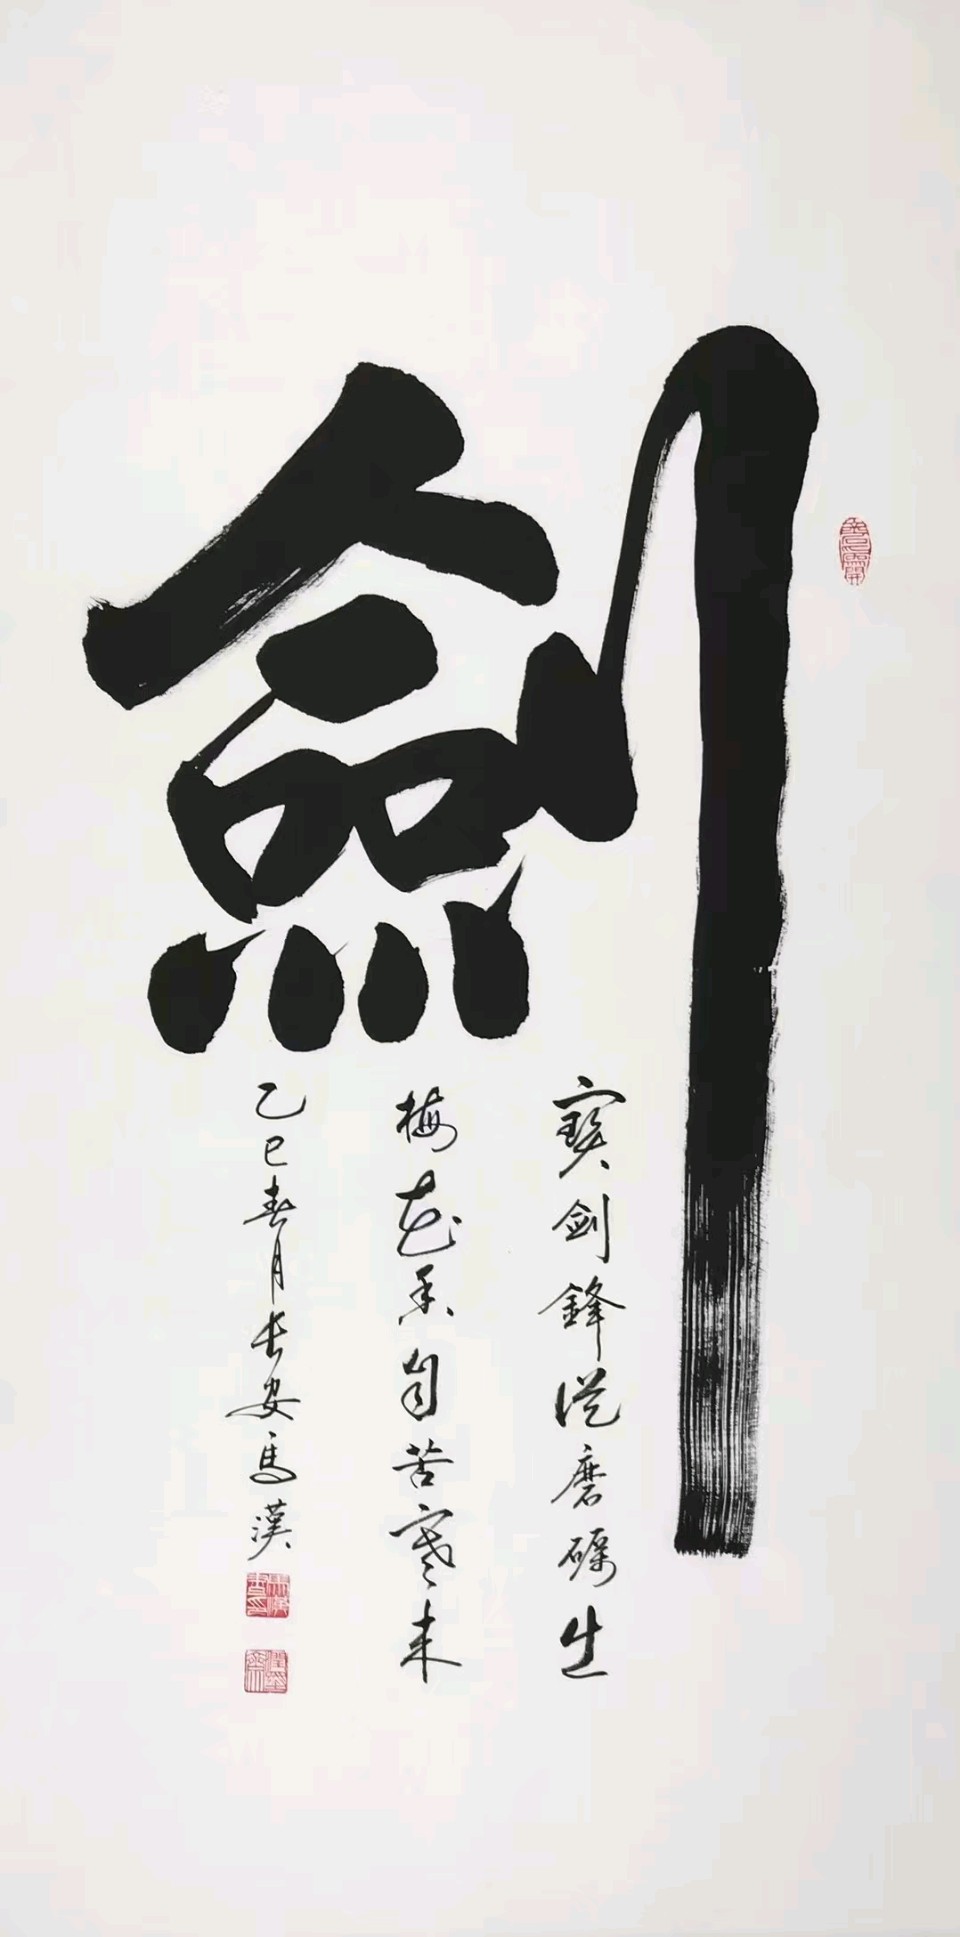 劍
寶劍鋒從磨礪生
梅花香自苦寒來
乙巳春月長安馬漢